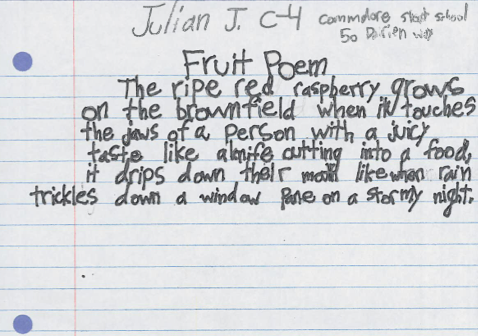 Julian J. C-4 commdore start school
50
Fruit Poem
The ripe red raspberry grows
on the brownfield when it touches
the jaws of a person with a juicy
taste like a knife cutting into a food,
it drips down their like when rain
trickles down a window pane on a stormy night.